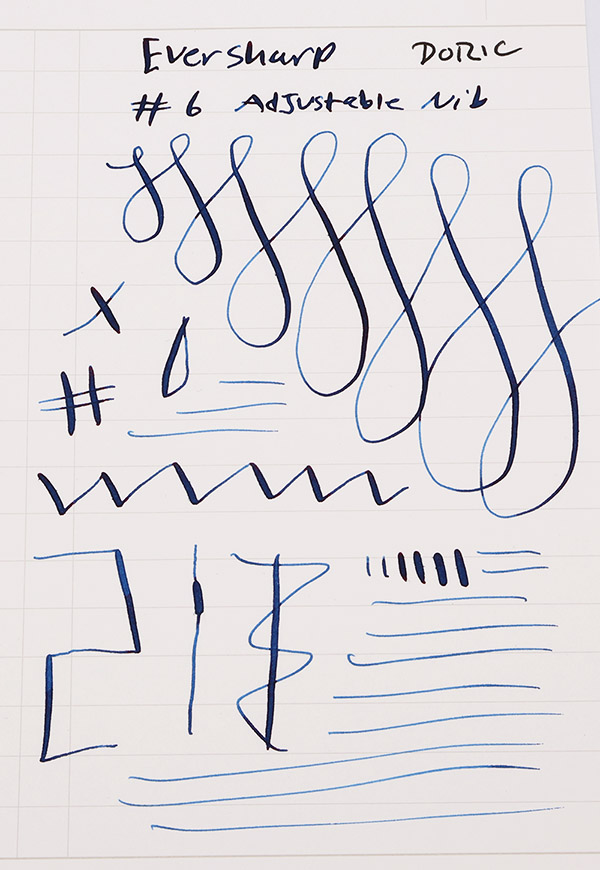 Eversharp DORIC
# 6 Adjustable Nib
x
#